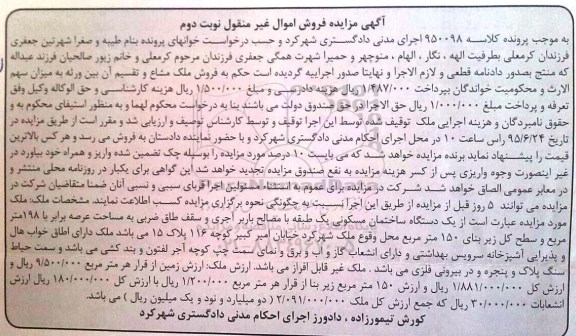 آگهی مزایده فروش اموال غیر منقول نوبت دوم
به موجب پرونده کلاسه ۹۵۰۰۹۸ اجرای مدنی دادگستری شهرکرد و حسب درخواست خوانهای پرونده بنام طیبه و صغرا شهرتین جعفری
فرزندان کرمعلی بطرفیت الهه ، نگار ، الهام ، منوچهر و حمیرا شهرت همگی جعفری فرزندان مرحوم کرمعلی و خانم زیور صالحیان فرزند عبداله
که منتج بصدور دادنامه قطعی و لازم الاجرا و نهایتا صدور اجراییه گردیده است حکم به فروش ملک مشاع و تقسیم آن بین ورثه به میزان سهم
الارث و محکومیت خواندگان بپرداخت ۱/۴۸۷/۰۰۰ ریال هزینه دادرسی و مبلغ ۱/۵۰۰/۰۰۰ ریال هزینه کارشناسی و حق الوکاله وکیل وفق
تعرفه و پرداخت مبلغ ۱/۰۰۰/۰۰۰ ریال حق الاجرا در حق صندوق دولت می باشند بنا به درخواست محکوم لهما و به منظور استیفای محکوم به و
حقوق نامبردگان و هزینه اجرایی ملک توقیف شده توسط این اجرا توقیف و توسط کارشناس توصیف و ارزیابی شد و مقرر است از طریق مزایده در
تاریخ ۹۵/۶/۲۴ راس ساعت ۱۰ در محل اجرای احکام مدنی دادگستری شهرکرد و با حضور نماینده دادستان به فروش می رسد و هر کس بالاترین
قیمت را پیشنهاد نماید برنده مزایده خواهد شد که می بایست ۱۰ درصد مورد مزایده را بوسیله چک تضمین شده واریز و همراه خود بیاورد در
غیر اینصورت وجوه واریزی پس از کسر هزینه مزایده به نفع صندوق مزایده تجدید خواهد شد این گواهی برای یکبار در روزنامه محلی منتشر و
در معابر عمومی الصاق خواهد شد شرکت در مزایده برای عموم به استثناء مسئولین اجرا اقربای سببی و نسبی آنان ضمنا متقاضیان شرکت در
مزایده می توانند ۵ روز قبل از مزایده از طریق این اجرا نسبت به چگونگی نحوه برگزاری مزایده کسب اطلاعات نمایند. مشخصات ملک: ملک
مورد مزایده عبارت است از یک دستگاه ساختمان مسکونی یک طبقه با مصالح باربر آجری و سقف طاق ضربی به مساحت عرصه برابر با ۱۹۸ متر
مربع و سطح کل زیر بنای ۱۵۰ متر مربع محل وقوع ملک شهرکرد خیابان امیر کبیر کوچه ۱۱۶ پلاک ۱۵ می باشد ملک دارای اطاق خواب هال
و پذیرایی آشپزخانه سرویس بهداشتی و دارای انشعاب گاز و آب و برق و نمای سمت چپ کوچه آجر لفتون و بند کشی می باشد و سمت حیاط
سنگ پلاک و پنجره و در بیرونی فلزی می باشد . ملک غیر قابل افراز می باشد. ارزش ملک: ارزش زمین از قرار هر متر مربع ۹/۵۰۰/۰۰۰ ریال و
ارزش کل ۱/۸۸۱/۰۰۰/۰۰۰ ریال و ارزش ۱۵۰ متر مربع زیر بنا از قرار هر متر مربع ۱/۲۰۰/۰۰۰ ریال با ارزش کل ۱۸۰/۰۰۰/۰۰۰ ریال ارزش
انشعابات ۳۰/۰۰۰/۰۰۰ ریال که جمع ارزش کل ملک ۲/۰۹۱/۰۰۰/۰۰۰ ( دو میلیارد و نود و یک میلیون ریال ) می باشد.
کورش تیمورزاده ، دادورز اجرای احکام مدنی دادگستری شهرکرد